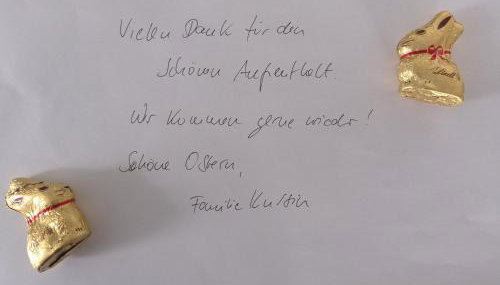 Vielen Dank für den
schönen Aufenthalt.
Wir kommen gerne wieder!
Schöne Ostern,
Familie
Lindt